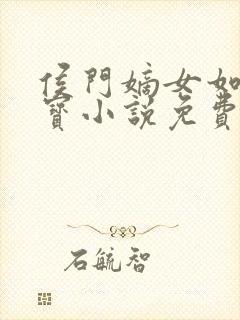 侯門嫡女如
寶小說免費
石毓智